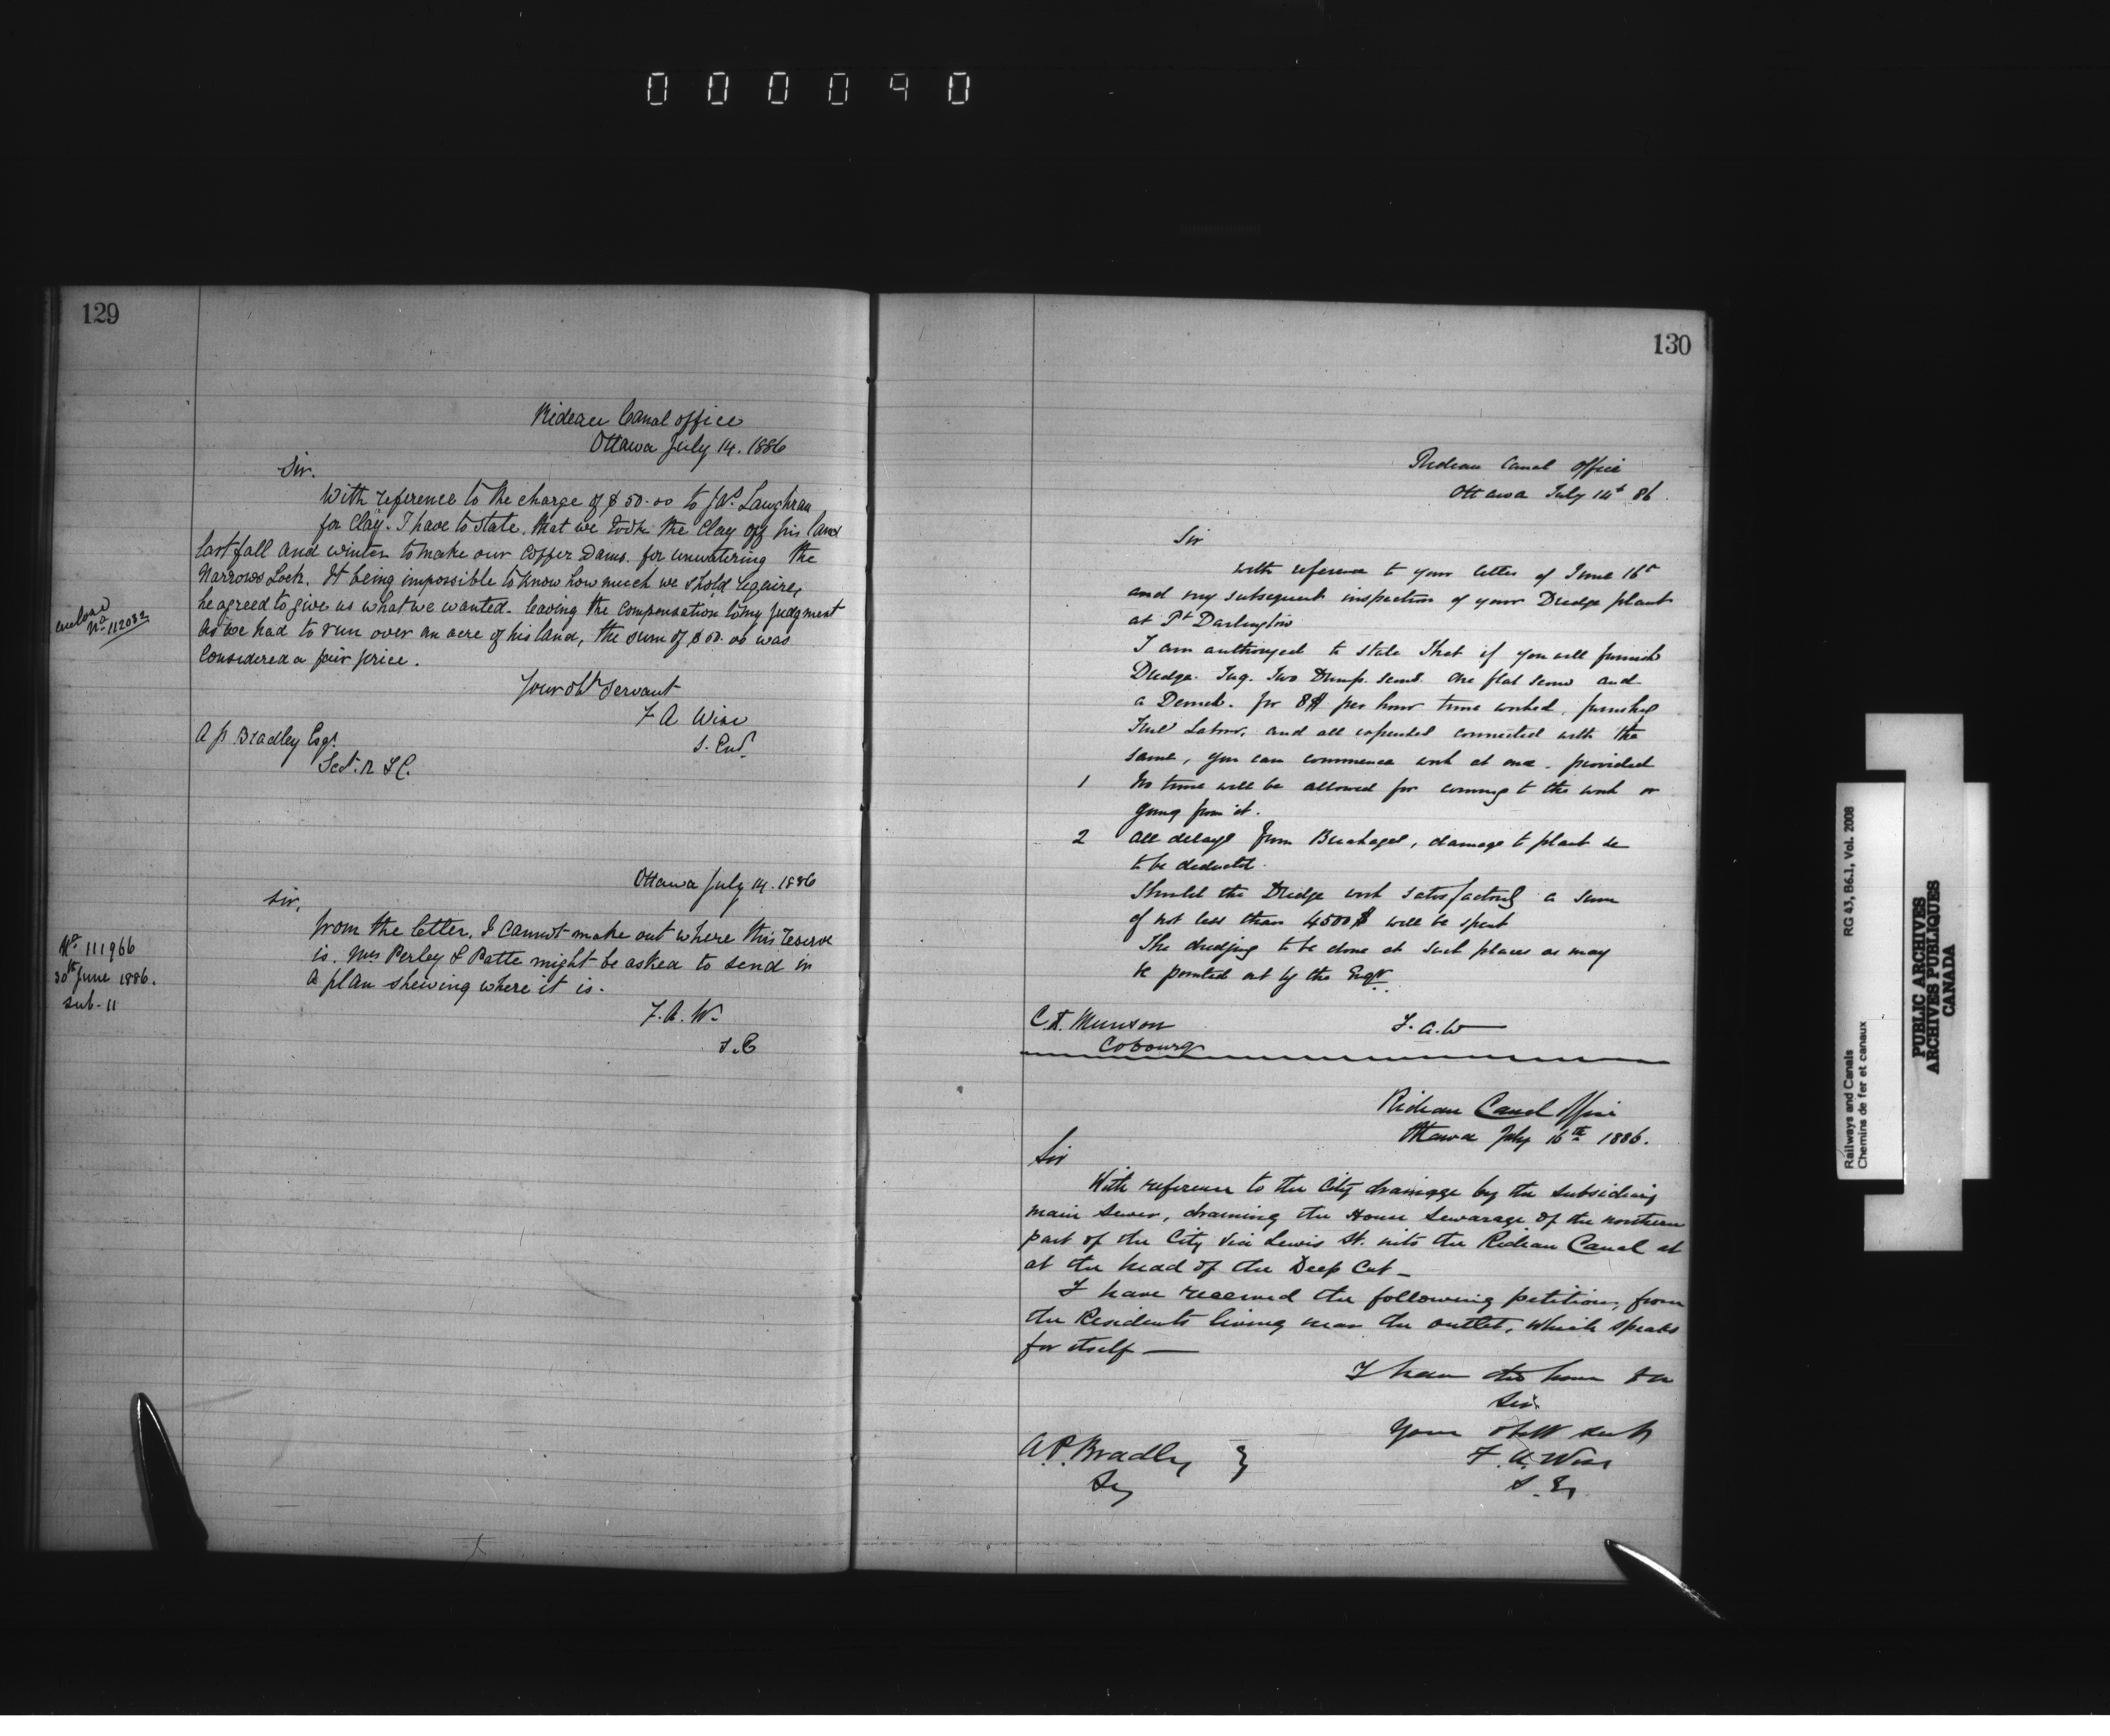 000090
129
Rideau Canal office
Ottawa July 14. 1886
Sir.
With reference to the charge of $50.00 to Jas. Laughran
for Clay. I have to state, that we took the Clay off his land
last fall and winter to make our Coffer Dams. for unwatering the
Narrows Lock. It being impossible to know how much we shold require,
he agreed to give us what we wanted. leaving the compensation to my Judgment
As we had to run over an acre of his land, the sum of $50.00 was
Considered a fair price.
Your obt servant
F A Wise
S. Eng.
A P. Bradley Esqr.
Sect. R & C.
No. 112082
Ottawa July 14. 1886
Sir,
from the letter. I cannot make out where this reserve
is. Mrs Perley & Patte might be asked to send in
a plan shewing where it is.
F. A. W.
S. E
No. 111966
30th June 1886.
sub. 11
130
Rideau Canal Office
Ottawa July 14th 86.
Sir
With reference to your letter of June 16th
and my subsequent inspection of your Dredge plant
at Pt Darlington
I am authorized to state that if you will furnish
Dredge. Tug. Two Dump. scows. One flat scow and
a Derrick. for 8$ per hour time worked, furnishing
Fuel Labor, and all expenses connected with the
same, you can commence work at once. provided
1 No time will be allowed for coming to the work or
going from it.
2 All delays from Breakages, damage to plant &c
to be deducted.
Should the Dredge work satisfactorily a sum
of not less than 4500$ will be spent
The dredging to be done at such places as may
be pointed out by the Engr.
C. F. Munson
Cobourg
F. A. W
Rideau Canal Office
Ottawa July 16th 1886.
Sir
With reference to the City drainage by the subsidiary
main sewer, draining the House Sewarage of the northern
part of the City via Lewis St. into the Rideau Canal at
at the head of the Deep Cut -
I have received the following petition, from
the Residents living near the outlet, which speaks
for itself —
I have the honor &c
Sir
Your obdt servt
F. A. Wise
S. E.
A. P. Bradley
Sey
Railways and Canals
Chemins de fer et canaux
RG 43, B6.1, Vol. 2008
PUBLIC ARCHIVES
ARCHIVES PUBLIQUES
CANADA